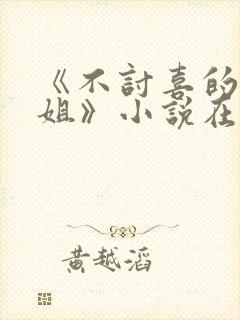 《不討喜的
姐》小說在
黃越滔